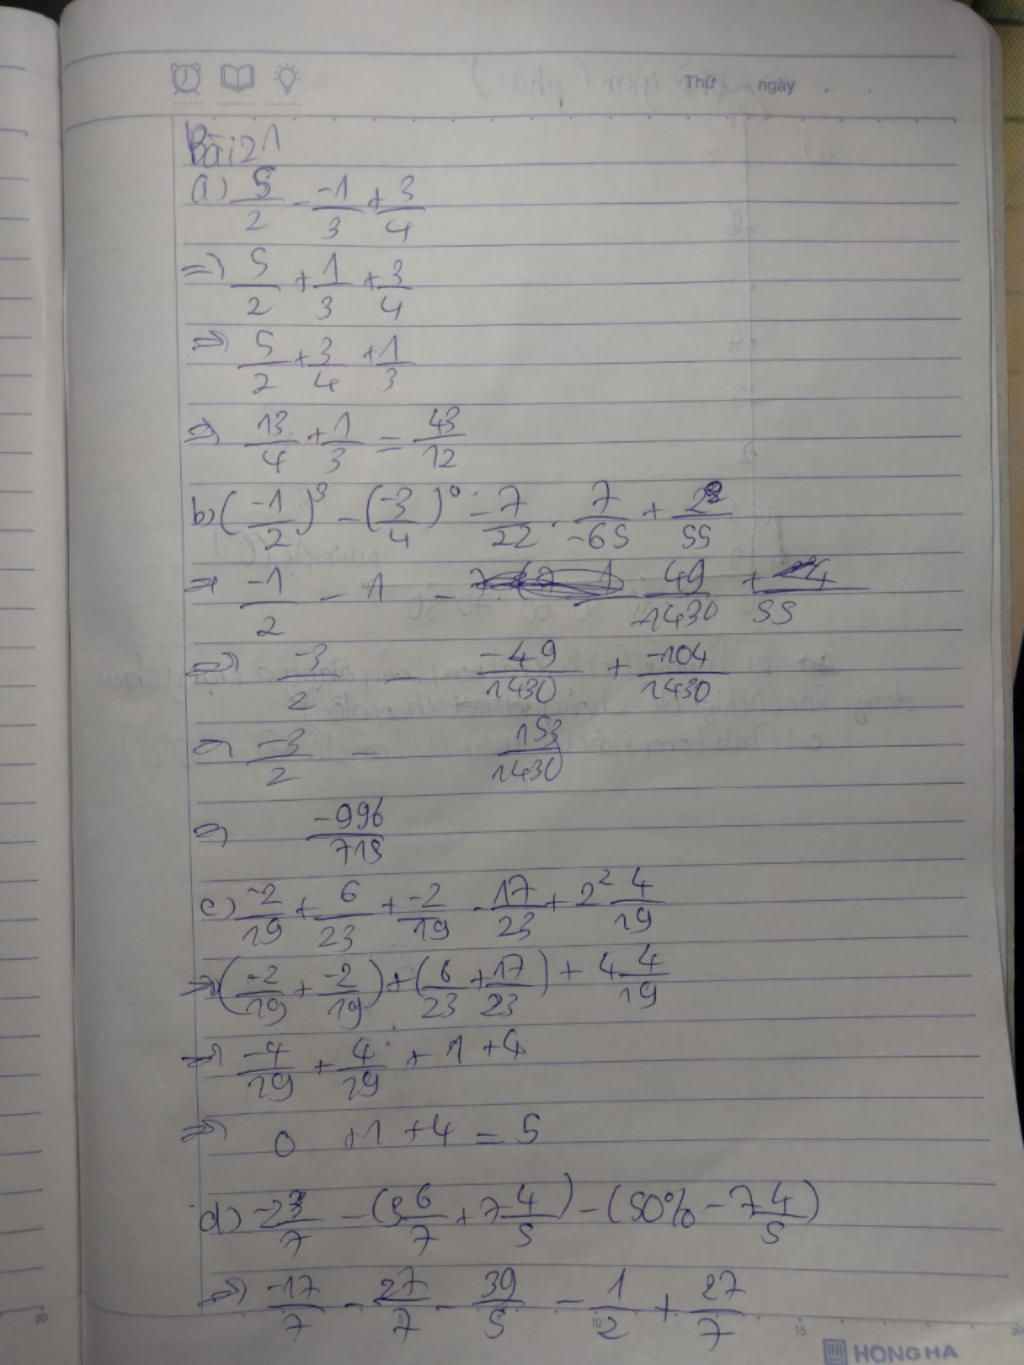 Thứ ngày
Bài 21
a) 5/2 - -1/3 + 3/4
=) 5/2 + 1/3 + 3/4
=) 5/2 + 3/4 + 1/3
=) 13/4 + 1/3 = 43/12
b) (-1/2)³ - (-3/4)⁰ - 7/22 . 7/-65 + 28/55
=) -1/2 - 1 - 49/-1430 + 4/55
=) -3/2 - -49/1430 + -104/1430
=) -3/2 - 153/1430
=) -996/715
c) -2/19 + 6/23 + -2/19 - 17/23 + 2² 4/19
=) (-2/19 + -2/19) + (6/23 + 17/23) + 4 4/19
=) -4/19 + 4/19 + 1 + 4
=) 0 + 1 + 4 = 5
d) -2 3/7 - (3 6/7 + 7 4/5) - (50% - 7 4/5)
=) -17/7 - 27/7 - 39/5 - 1/2 + 27/7
20 5 10 15 20
HONG HA